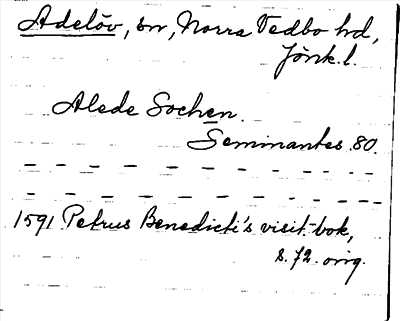 Adelöv, sn, Norra Vedbo hd,
Jönk. l.
Alede Sochen.
Seminantes 80.
1591 Petrus Benedicti's visit.bok,
s. 72. orig.